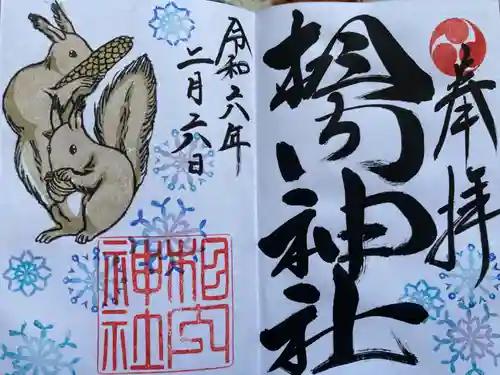 奉拝
相内神社
令和六年
二月六日
相内
神社